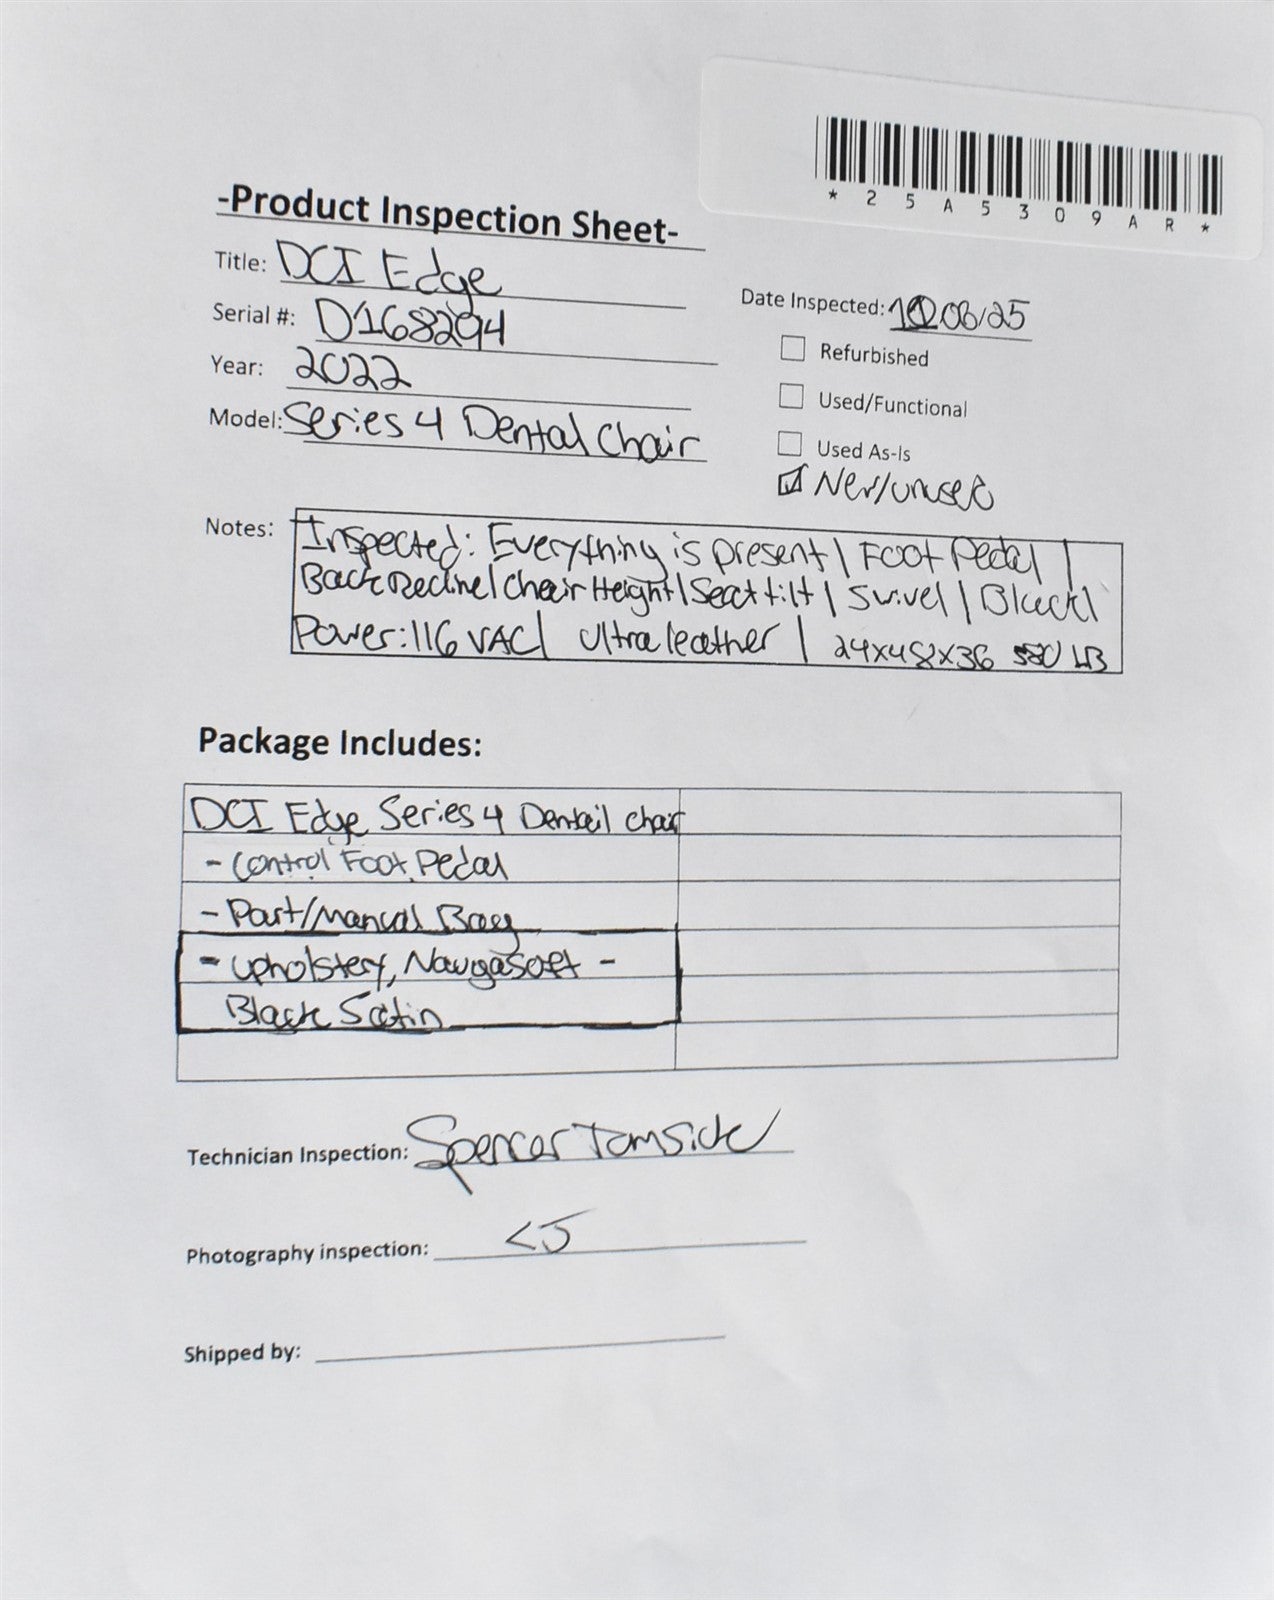 *25A5309AR*
-Product Inspection Sheet-
Title: DCI Edge
Serial #: D168294
Year: 2022
Model: Series 4 Dental Chair
Date Inspected: 08/25
Refurbished
Used/Functional
Used As-Is
New/unused
Notes: Inspected: Everything is present | Foot Pedal |
Back Recline | Chair Height | Seat tilt | Swivel | Black |
Power: 116 VAC | Ultraleather | 24x48x36 LB
Package Includes:
DCI Edge Series 4 Dentail chair
- Control Foot Pedal
- Part/Manual Bag
- Upholstery, Naugasoft -
Black Satin
Technician Inspection: Spencer
Photography inspection:
Shipped by: